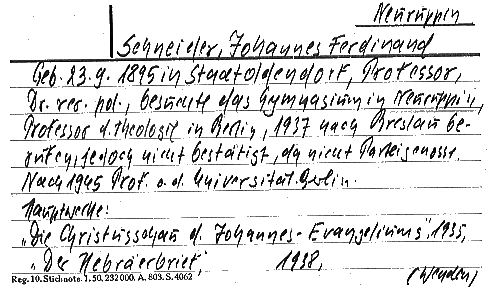 Neuruppin
Schneider, Johannes Ferdinand
Geb. 23.9. 1895 in Stadtoldendorf, Professor,
Dr. rer. pol., besuchte das Gymnasium in Neuruppin,
Professor d. Theologie in Berlin, 1937 nach Breslau be-
rufen, jedoch nicht bestätigt, da nicht Parteigenosse.
Nach 1945 Prof. a. d. Universität Berlin.
Hauptwerke:
„Die Christusschau d. Johannes-Evangeliums", 1935,
„Der Hebräerbrief", 1938,
Reg. 10. Stichnote. 1. 50. 232000. A. 803. S. 4062